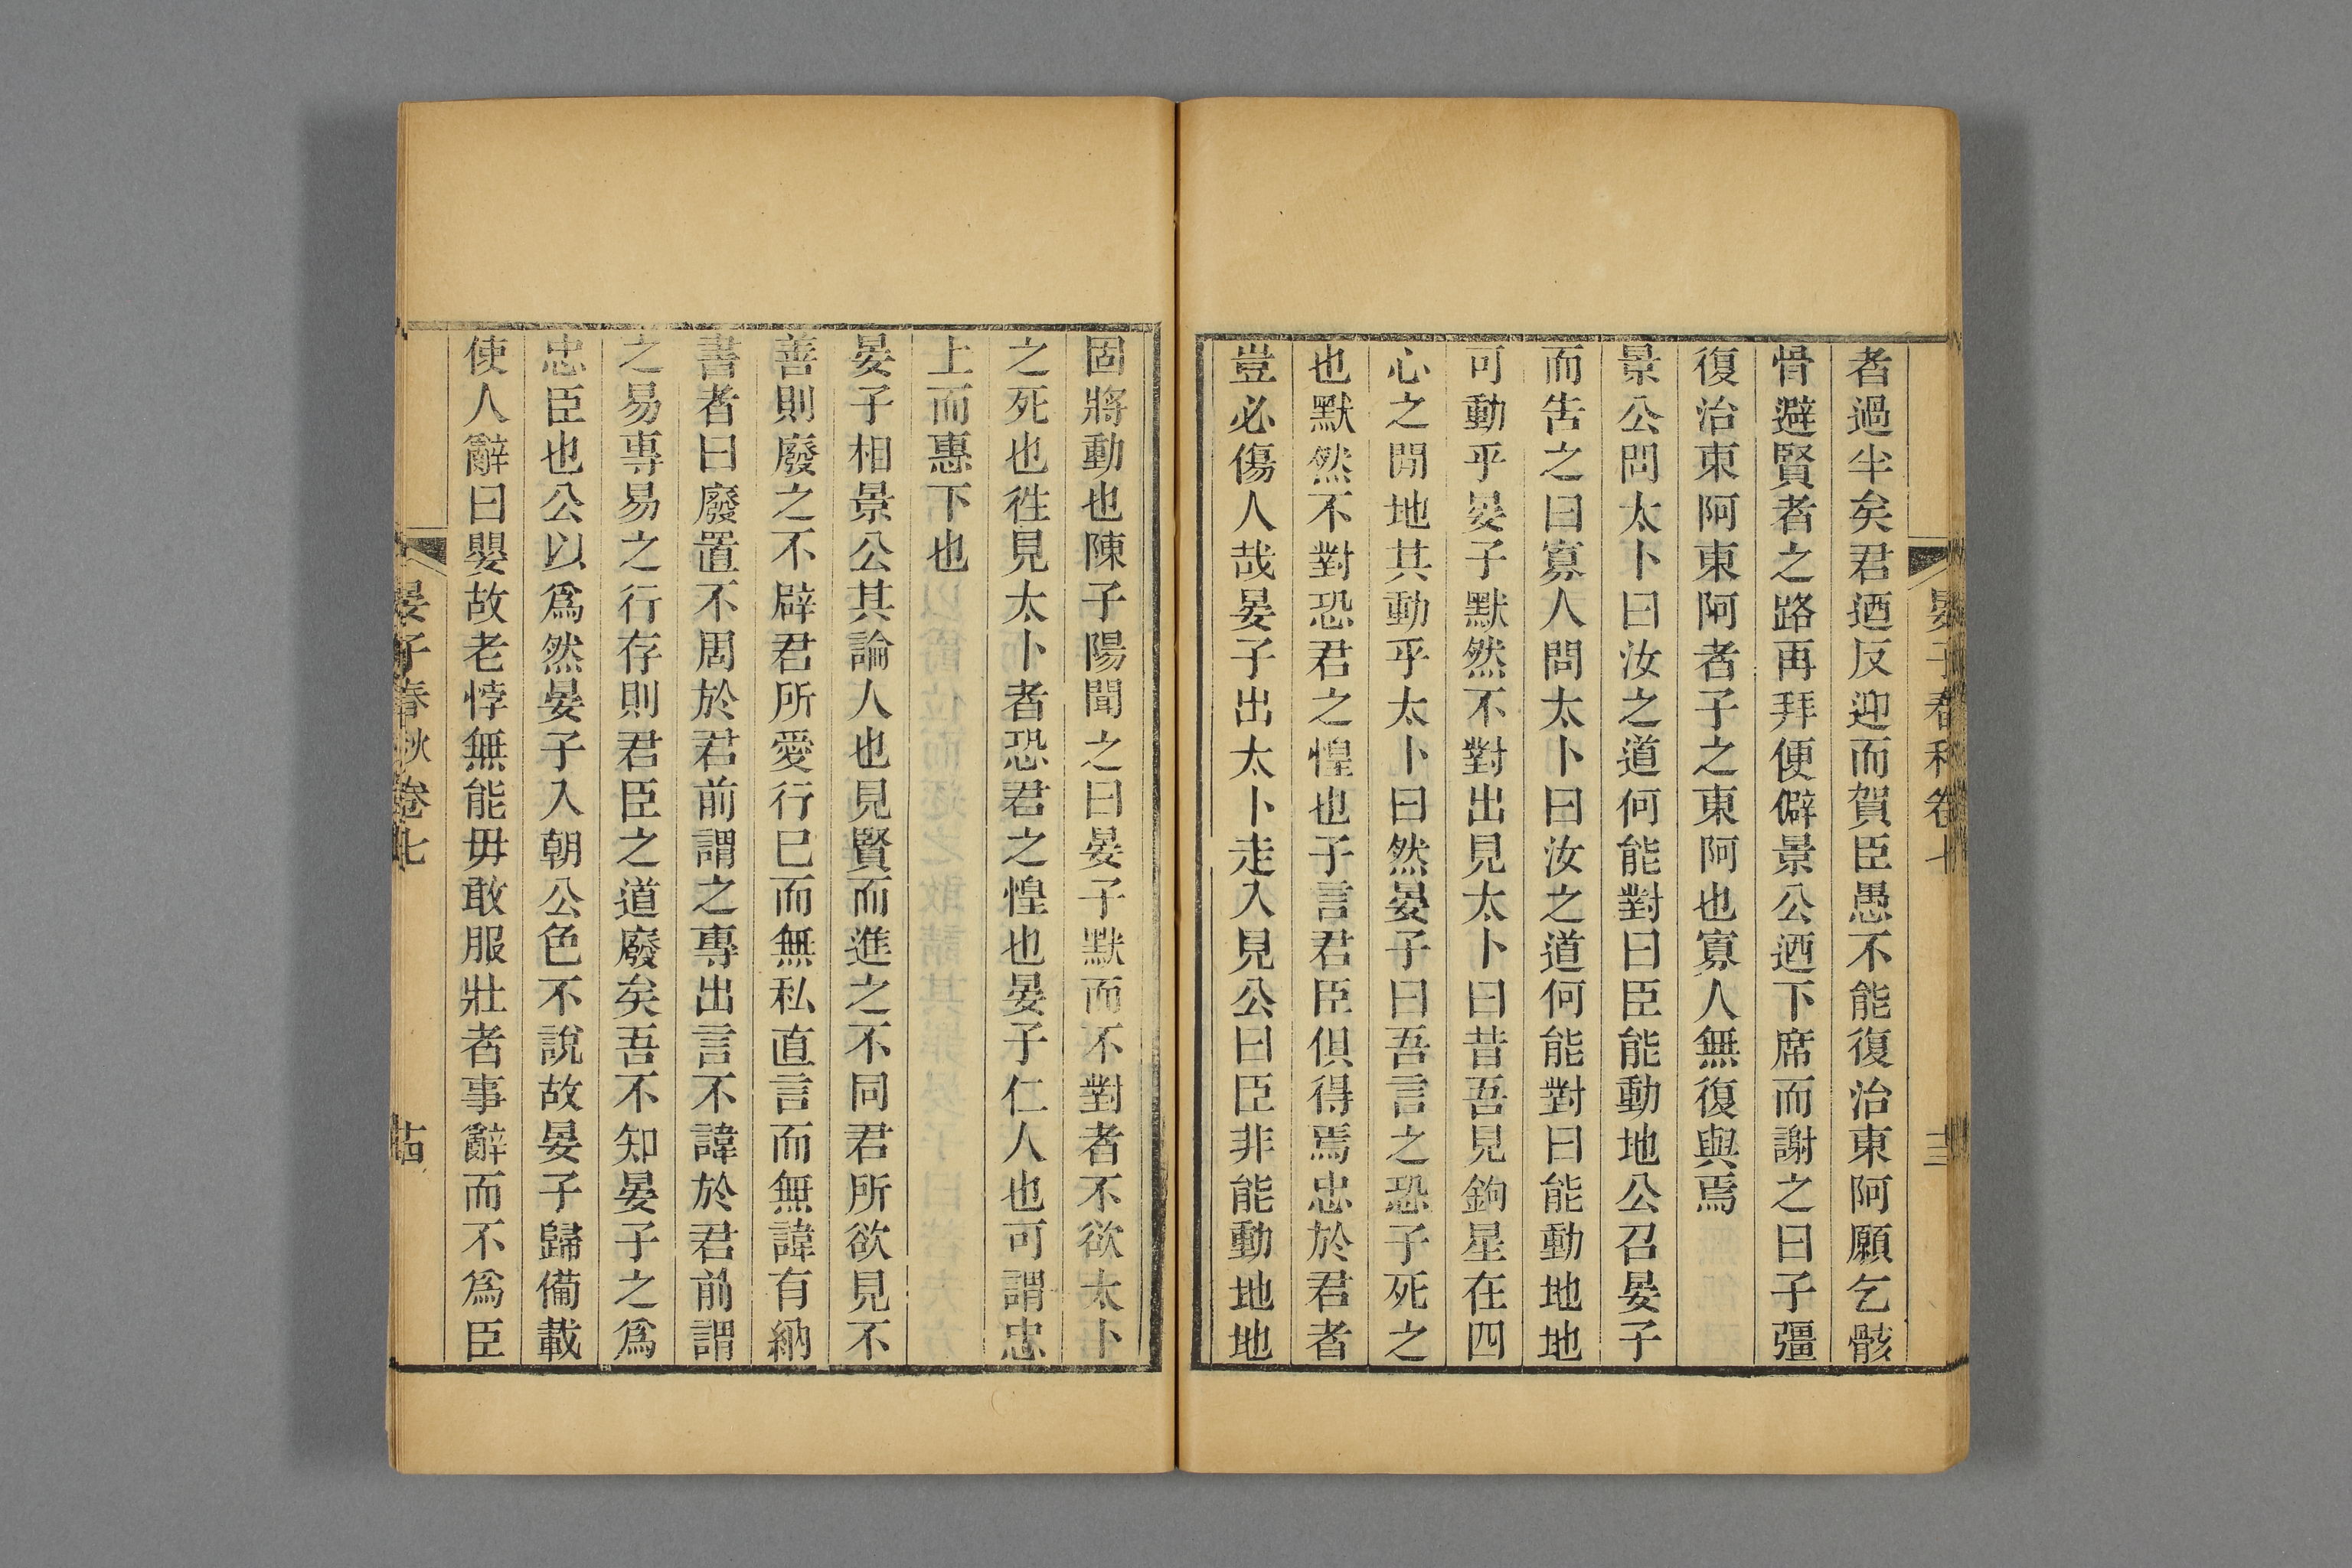 晏子春秋卷七
十三
者過半矣君迺反迎而賀臣愚不能復治東阿願乞骸
骨避賢者之路再拜便僻景公迺下席而謝之曰子彊
復治東阿東阿者子之東阿也寡人無復與焉
景公問太卜曰汝之道何能對曰臣能動地公召晏子
而告之曰寡人問太卜曰汝之道何能對曰能動地地
可動乎晏子默然不對出見太卜曰昔吾見鉤星在四
心之閒地其動乎太卜曰然晏子曰吾言之恐子死之
也默然不對恐君之惶也子言君臣俱得焉忠於君者
豈必傷人哉晏子出太卜走入見公曰臣非能動地地
固將動也陳子陽聞之曰晏子默而不對者不欲太卜
之死也徃見太卜者恐君之惶也晏子仁人也可謂忠
上而惠下也
晏子相景公其論人也見賢而進之不同君所欲見不
善則廢之不辟君所愛行已而無私直言而無諱有納
書者曰廢置不周於君前謂之專出言不諱於君前謂
之易專易之行存則君臣之道廢矣吾不知晏子之爲
忠臣也公以爲然晏子入朝公色不說故晏子歸備載
使人辭曰嬰故老悖無能毋敢服壯者事辭而不爲臣
晏子春秋卷七
十四